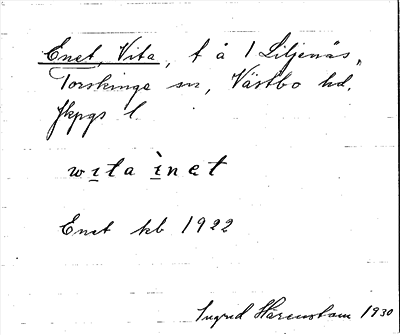 Enet, Vita, t å 1 Liljenäs,
Torskinge sn, Västbo hd.
Jkpgs l
wita ìnet
Enet kb 1922
Ingrid Härenstam 1930